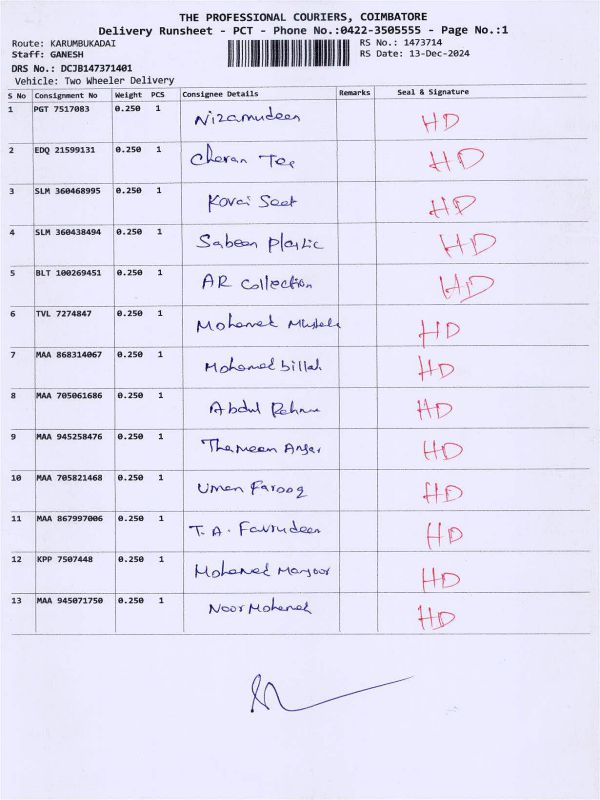 THE PROFESSIONAL COURIERS, COIMBATORE
Delivery Runsheet - PCT - Phone No.:0422-3505555 - Page No.:1
Route: KARUMBUKADAI RS No.: 1473714
Staff: GANESH RS Date: 13-Dec-2024
DRS No.: DCJB147371401
Vehicle: Two Wheeler Delivery
S No Consignment No Weight PCS Consignee Details Remarks Seal & Signature
1 PGT 7517083 0.250 1 Nizamudeen HD
2 EDQ 21599131 0.250 1 Cheran Tex HD
3 SLM 360468995 0.250 1 Kovai Seat HD
4 SLM 360438494 0.250 1 Sabeen Plastic HD
5 BLT 100269451 0.250 1 AR Collection HD
6 TVL 7274847 0.250 1 Mohamed HD
7 MAA 868314067 0.250 1 Mohamed billah HD
8 MAA 705061686 0.250 1 Abdul HD
9 MAA 945258476 0.250 1 Thameem Ansar HD
10 MAA 705821468 0.250 1 Umar Farooq HD
11 MAA 867997006 0.250 1 T.A. Fairudeen HD
12 KPP 7507448 0.250 1 Mohamed Mansoor HD
13 MAA 945071750 0.250 1 Noor Mohamed HD